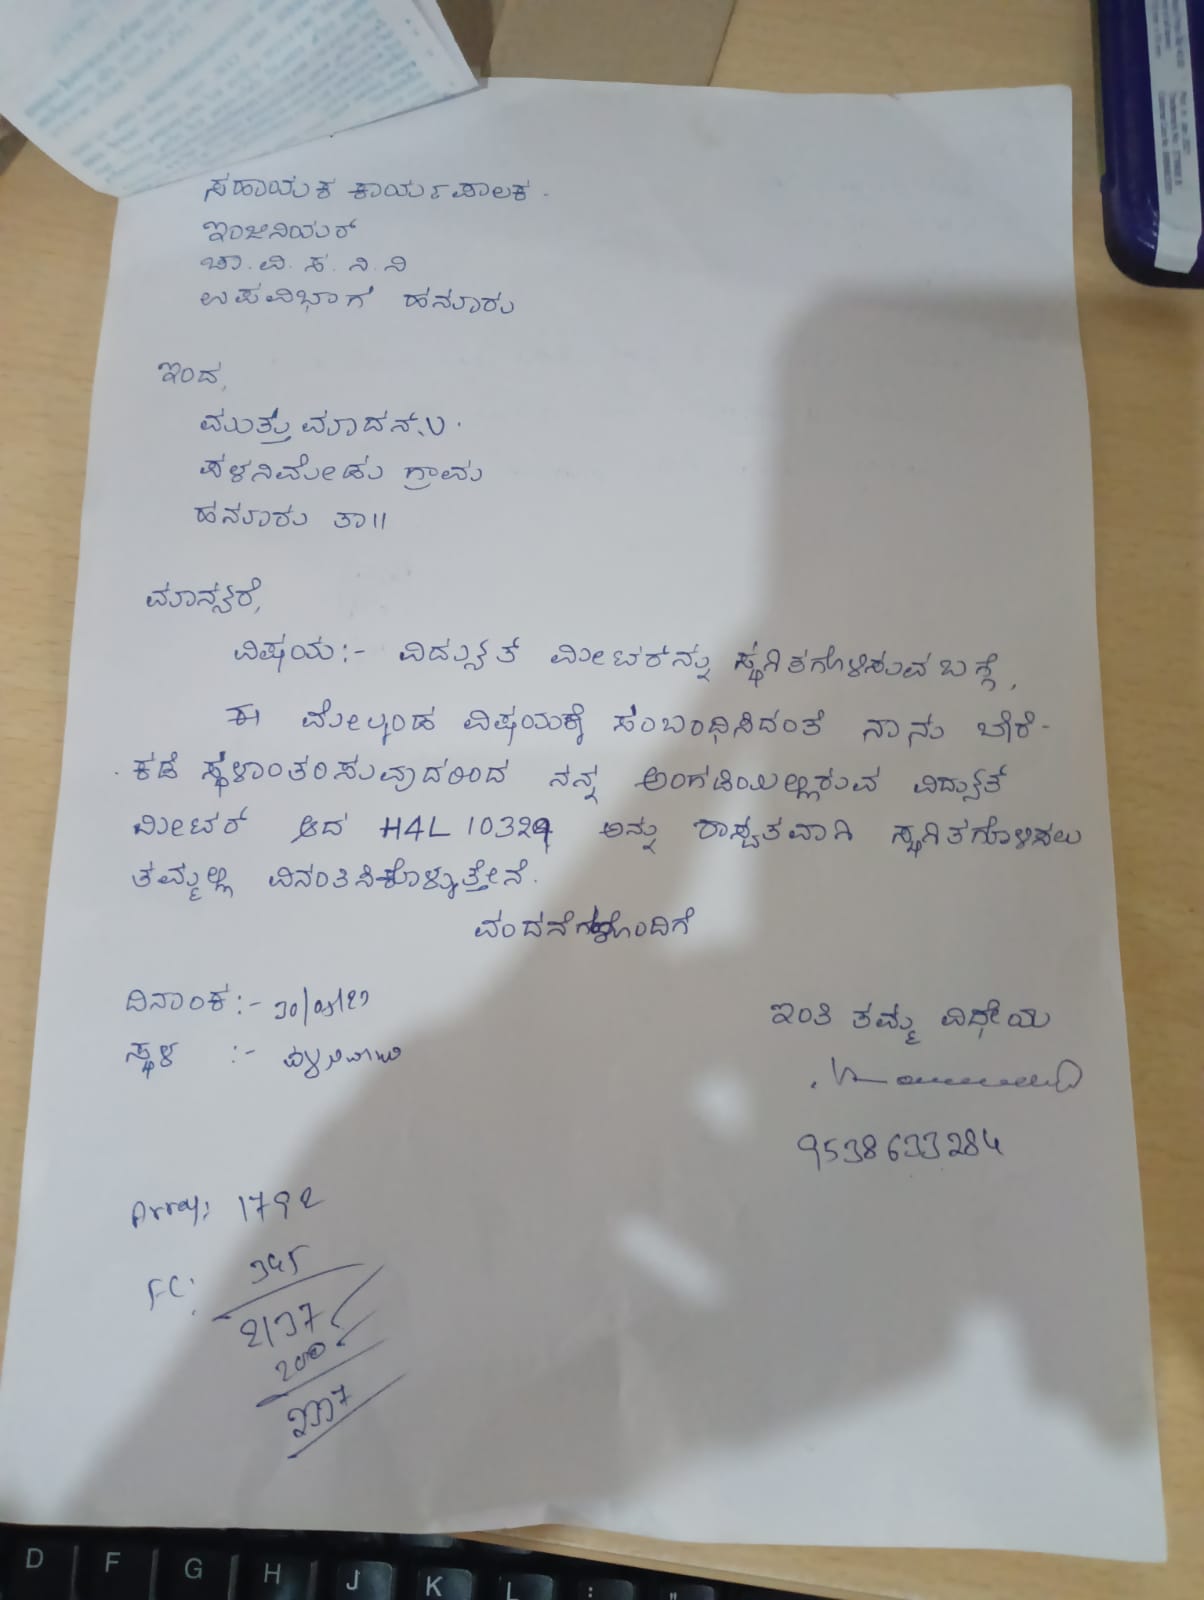 ಸಹಾಯಕ ಕಾರ್ಯಪಾಲಕ.
ಇಂಜಿನಿಯರ್
ಚಾ.ವಿ.ಸ.ನಿ.ನಿ
ಉಪವಿಭಾಗ ಹನೂರು
ಇಂದ,
ಮುತ್ತುಮಾದನ್.V.
ಪಳನಿಮೇಡು ಗ್ರಾಮ
ಹನೂರು ತಾ॥
ಮಾನ್ಯರೆ,
ವಿಷಯ:- ವಿದ್ಯುತ ಮೀಟರ್‌ನ್ನು ಸ್ಥಗಿತಗೊಳಿಸುವ ಬಗ್ಗೆ,
ಈ ಮೇಲ್ಕಂಡ ವಿಷಯಕ್ಕೆ ಸಂಬಂಧಿಸಿದಂತೆ ನಾನು ಬೇರೆ-
ಕಡೆ ಸ್ಥಳಾಂತರಿಸುವುದರಿಂದ ನನ್ನ ಅಂಗಡಿಯಲ್ಲಿರುವ ವಿದ್ಯುತ್
ಮೀಟರ್ ಆದ H4L 10329 ಅನ್ನು ಶಾಸ್ವತವಾಗಿ ಸ್ಥಗಿತಗೊಳಿಸಲು
ತಮ್ಮಲ್ಲಿ ವಿನಂತಿಸಿಕೊಳ್ಳುತ್ತೇನೆ.
ವಂದನೆಗಳೊಂದಿಗೆ
ದಿನಾಂಕ:- 30/05/23
ಸ್ಥಳ :-
ಇಂತಿ ತಮ್ಮ ವಿಧೇಯ
9538633284
Array: 1792
FC: 345
2137
200
2337
D F G H J K L : "